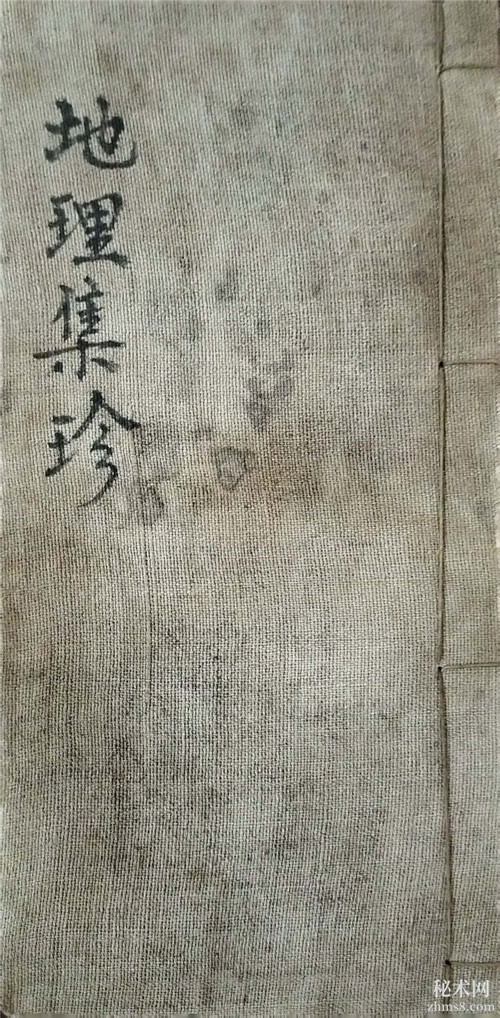 地理集珍
秘术网
zhms8.com